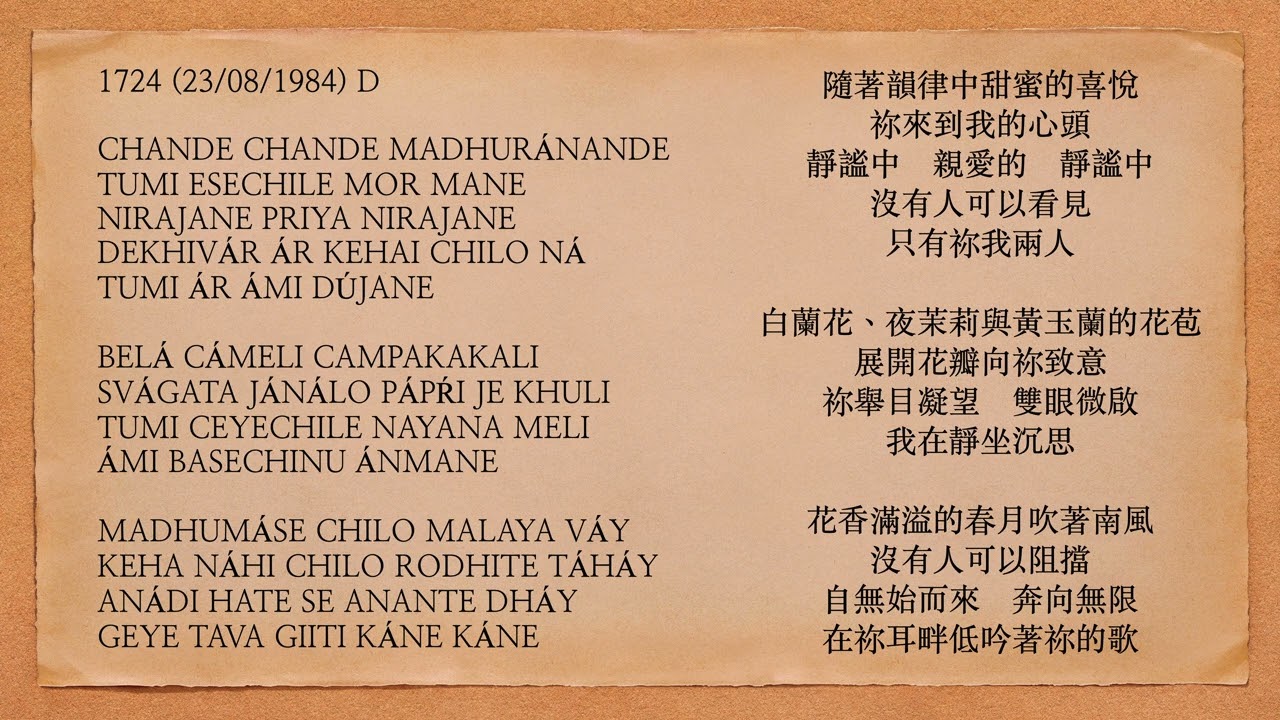 1724 (23/08/1984) D
CHANDE CHANDE MADHURÁNANDE
TUMI ESECHILE MOR MANE
NIRAJANE PRIYA NIRAJANE
DEKHIVÁR ÁR KEHAI CHILO NÁ
TUMI ÁR ÁMI DÚJANE
BELÁ CÁMELI CAMPAKAKALI
SVÁGATA JÁNÁLO PÁPŔI JE KHULI
TUMI CEYECHILE NAYANA MELI
ÁMI BASECHINU ÁNMANE
MADHUMÁSE CHILO MALAYA VÁY
KEHA NÁHI CHILO RODHITE TÁHÁY
ANÁDI HATE SE ANANTE DHÁY
GEYE TAVA GIITI KÁNE KÁNE
隨著韻律中甜蜜的喜悅
祢來到我的心頭
靜謐中　親愛的　靜謐中
沒有人可以看見
只有祢我兩人
白蘭花、夜茉莉與黃玉蘭的花苞
展開花瓣向祢致意
祢舉目凝望　雙眼微啟
我在靜坐沉思
花香滿溢的春月吹著南風
沒有人可以阻擋
自無始而來　奔向無限
在祢耳畔低吟著祢的歌